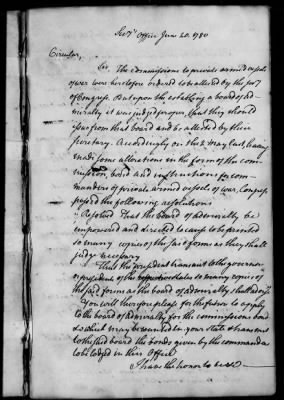 Secy's Office June 20. 1780
Circular,
Sir. The commissions to private armed vessels
of war were heretofore ordered to be attested by the secy
of Congress. But upon the establishing a board of ad-
miralty it was judged proper, that they should
issue from that board and be attested by their
secretary. Accordingly on the 2 May last, having
made some alterations in the form of the com-
mission, bond and instructions for com-
manders of private armed vessels of war, Congress
passed the following resolutions
Resolved That the board of admiralty be
impowered and directed to cause to be printed
so many copies of the said forms as they shall
judge necessary
That the president transmit to the governors
or presidents of the respective states so many copies of
the said forms as the board of admiralty shall advise
You will therefore please for the future to apply
to the board of admiralty for the commissions bonds
&c which may be wanted in your state & transmit
to the said board the bonds given by the commanders
to be lodged in their Office
I have the honor to be &c